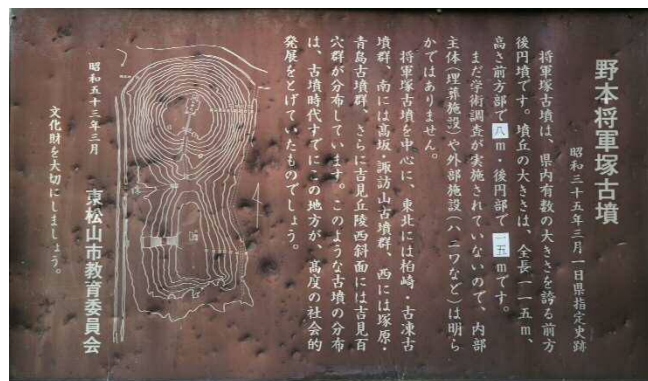 野本将軍塚古墳
昭和三十五年三月一日県指定史跡
将軍塚古墳は、県内有数の大きさを誇る前方
後円墳です。墳丘の大きさは、全長一一五m、
高さ前方部で八m・後円部で一五mです。
まだ学術調査が実施されていないので、内部
主体(埋葬施設)や外部施設(ハニワなど)は明ら
かではありません。
将軍塚古墳を中心に、東北には柏崎・古凍古
墳群、南には高坂・諏訪山古墳群、西には塚原・
青鳥古墳群、さらに吉見丘陵西斜面には吉見百
穴群が分布しています。このような古墳の分布
は、古墳時代すでにこの地方が、高度の社会的
発展をとげていたものでしょう。
昭和五十三年三月
東松山市教育委員会
文化財を大切にしましょう。